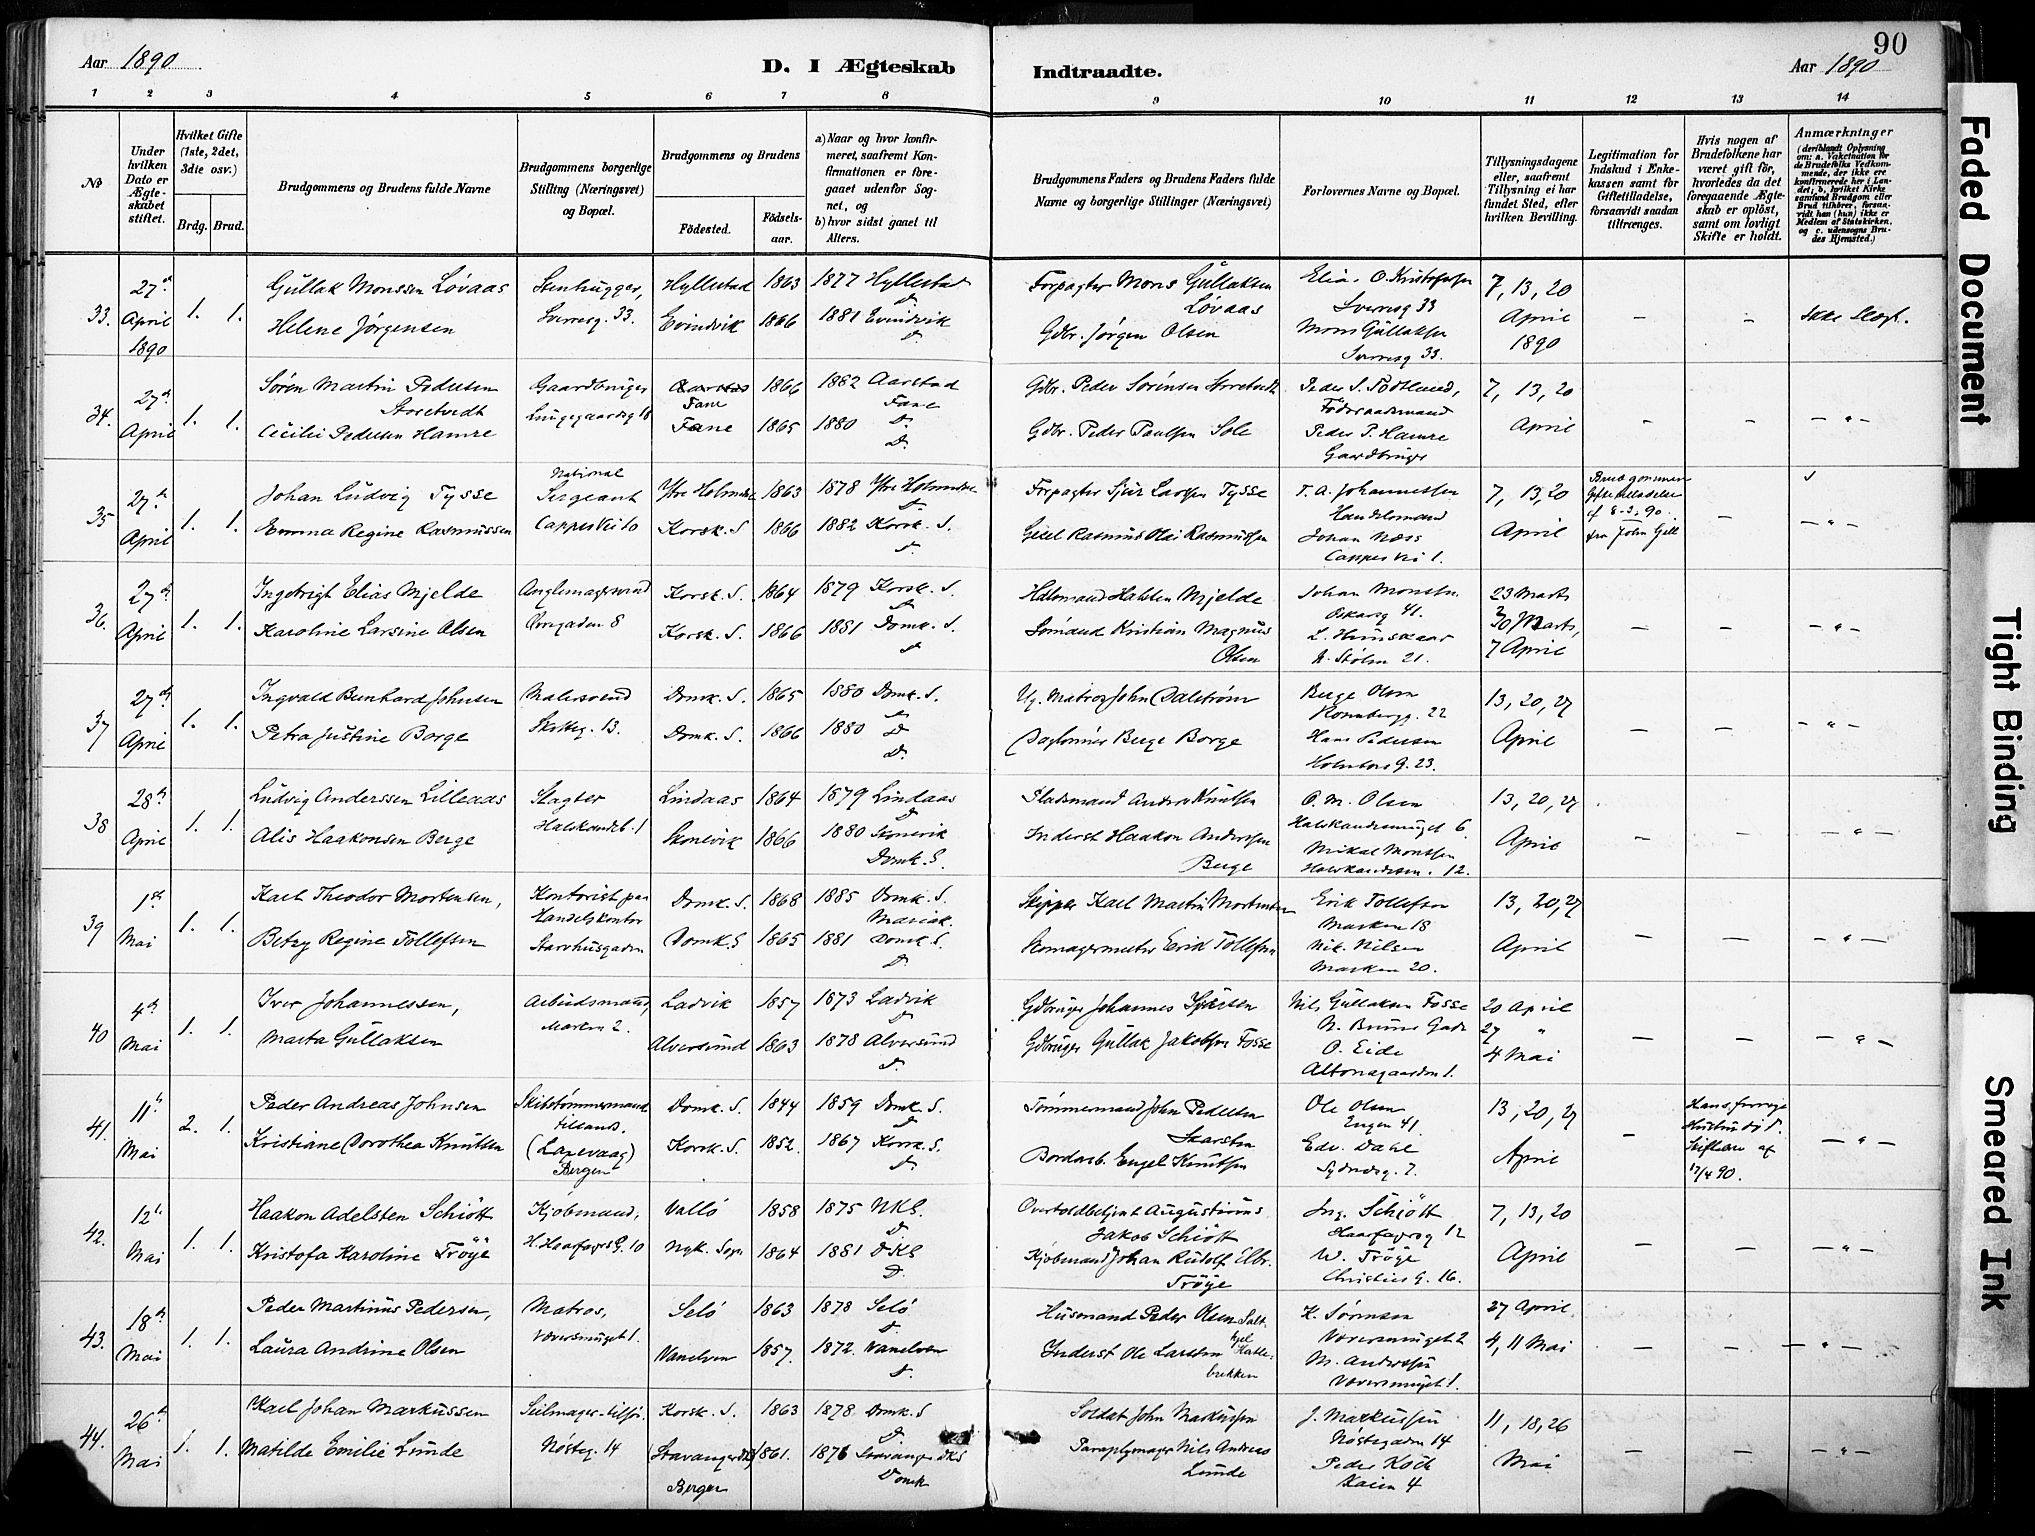 Aar 1890
D. I Ægteskab
Indtraadte.
90
Aar 1890
1 2 3 4 5 6 7 8 9 10 11 12 13 14
No
Under hvilken Dato er Ægteskabet stiftet.
Hvilket Gifte (1ste, 2det, 3die osv.)
Brdg. Brud.
Brudgommens og Brudens fulde Navne
Brudgommens borgerlige Stilling (Næringsvei) og Bopæl.
Brudgommens og Brudens
Fødested.
Fødselsaar.
a) Naar og hvor konfirmeret, saafremt Konfirmationen er foregaaet udenfor Sognet, og
b) hvor sidst gaaet til Alters.
Brudgommens Faders og Brudens Faders fulde Navne og borgerlige Stillinger (Næringsvei)
Forlovernes Navne og Bopæl.
Tillysningsdagene eller, saafremt Tillysning ei har fundet Sted, efter hvilken Bevilling.
Legitimation for Indskud i Enkekassen samt for Giftetilladelse, forsaavidt saadan tiltrænges.
Hvis nogen af Brudefolkene har været gift før, hvorledes da det foregaaende Ægteskab er opløst, samt om lovligt Skifte er holdt.
Anmærkninger
(deriblandt Oplysning om: a. Vakcination for de Brudefolks Vedkommende, der ikke ere konfirmerede her i Landet; b, hvilket Kirkesamfund Brudgom eller Brud tilhører, forsaavidt han (hun) ikke er Medlem af Statskirken, og c. udensogns Brudes Hjemsted.)
33. 27de April 1890 1. 1.
Gullak Monssen Løvaas
Helene Jørgensen
Stenhugger, Sverresg. 33.
Hyllestad 1863 1877 Hyllestad
Evindvik 1866 1881 Evindvik
Forpagter Mons Gullaksen Løvaas
Gdbr. Jørgen Olsen
Elias O. Kristofersen
Sverresg 33
Mons Gullaksen
Sverresg 33.
7, 13, 20 April 1890
Ikke Slægt.
34. 27de April 1. 1.
Søren Martin Pedersen Storetvedt
Cecilie Pedersen Hamre
Gaardbruger
Lungegaardsg 18
Aarstad Fane 1866 1882 Aarstad
Fane 1865 1880 Fane
Gdbr. Peder Sørensen Storetvedt
Gdbr. Peder Paulsen Sole
Føderaadsmand
Peder P. Hamre
Gaardbruger
7, 13, 20 April
35 27de April 1. 1.
Johan Ludvig Tysse
Emma Regine Rasmussen
National Sergeant
Ytre Holmedal 1863 1878 Ytre Holmedal
Korsk. S. 1866 1882 Korsk. S.
Forpagter Sjur Larssen Tysse
T. A. Johannessen
Handelsmand
Johan Næss
7, 13, 20 April
Brudgommens Giftetilladelse af 8-3, 90.
36. 27de April 1. 1.
Ingebrigt Elias Mjelde
Karoline Larsine Olsen
Korsk. S. 1864 1879 Korsk. S.
Korsk. S. 1866 1881 Domk. S.
Halsten Mjelde
Sømand Kristian Magnus Olsen
Johan Monsen
Oskarsg 41.
23 Marts 30 Marts, 7 April
37 27de April 1. 1.
Ingvald Bernhard Johnsen
Petra Justine Borge
Malersvend
Domk. S. 1865 1880 Domk. S.
Domk. S. 1866 1880
Ug. Matros John Dalstrøm
Berge Borge
Berge Olsen
Hans Pedersen
13, 20, 27 April
38 28de April 1. 1.
Ludvig Anderssen Lilleaas
Alis Haakonsen Berge
Slagter
Lindaas 1864 1879 Lindaas
Skonevik 1866 1880 Skonevik
Domk. S.
Inderst Haakon Anderssen Berge
O. M. Olsen
Mikal Monssen
13, 20, 27 April
39 1ste Mai 1. 1.
Karl Theodor Mortensen,
Betzy Regine Tollefsen
Kontorist paa Handelskontor
Domk. S. 1868 1885 Domk. S.
Mariak.
Domk. S 1865 1881 Domk. S.
Skipper Karl Martin Mortensen
Skomagermester Erik Tollefsen
Erik Tollefsen
Marken 18
Nik. Nilsen
Marken 20.
13, 20, 27 April
40 4de Mai 1. 1.
Iver Johannessen,
Marta Gullaksen
Arbeidsmand, Marken 2.
Ladvik 1857 1873 Ladvik
Alversund 1863 1878 Alversund
Gdbruger Johannes Iversen
Gdbruger Gullak Jakobsen Fosse
Nils Gullaksen Fosse
O. Eide
Altonagaarden 1.
20 April 27 " 4 Mai
41. 11te Mai 2. 1.
Peder Andreas Johnsen
Kristiane Dorothea Knutsen
Skibstømmermand tillands.
(Laxevaag) Bergen
Domk. S. 1844 1859 Domk. S.
Korsk. S. 1852. 1867 Korsk. S.
Tømmermand John Pedersen Skarsten
Bordarb. Engel Knutsen
Ole Olsen
Engen 41.
Edv. Dahl
Sydnesg. 7.
13, 20, 27 April
Hans forrige Hustru død. Skiftebev af 17/4 90.
42. 12te Mai 1. 1.
Haakon Adelsten Schiött
Kristofa Karoline Tröye
Kjøbmand,
H. Haarfagres G. 10
Vallö 1858 1875 NKS.
Nyk. Sogn 1864 1881 DKS
Overtoldbetjent Augustinus Jakob Schiött
Kjøbmand Johan Rudolf Elbr. Tröye
Ing. Schiött
Haarfagresg 12
W. Tröye
Christies G. 16.
7, 13, 20 April
43. 18de Mai 1. 1.
Peder Martinus Pedersen,
Laura Andrine Olsen
Matros,
Væversmuget 1.
Selö 1863 1878 Selö
Vanelven 1857. 1872. Vanelven
Husmand Peder Olsen
Inderst Ole Larssen
K. Sørensen
Væversmuget 2
M. Anderssen
Væversmuget 1.
27 April. 4, 11 Mai
44. 26de Mai 1. 1.
Karl Johan Markussen
Matilde Emilie Lunde
Nøsteg. 14
Korsk. S. 1863 1878. Domk. S
Stavanger 1861. 1876 Stavanger DKS
Bergen Domk
Soldat John Markussen
Paraplymager Nils Andreas Lunde
J. Markussen
Nøstegaden 14
Peder Koch
Kaien 4
11, 18, 26 Mai
Faded Document
Tight Binding
Smeared Ink